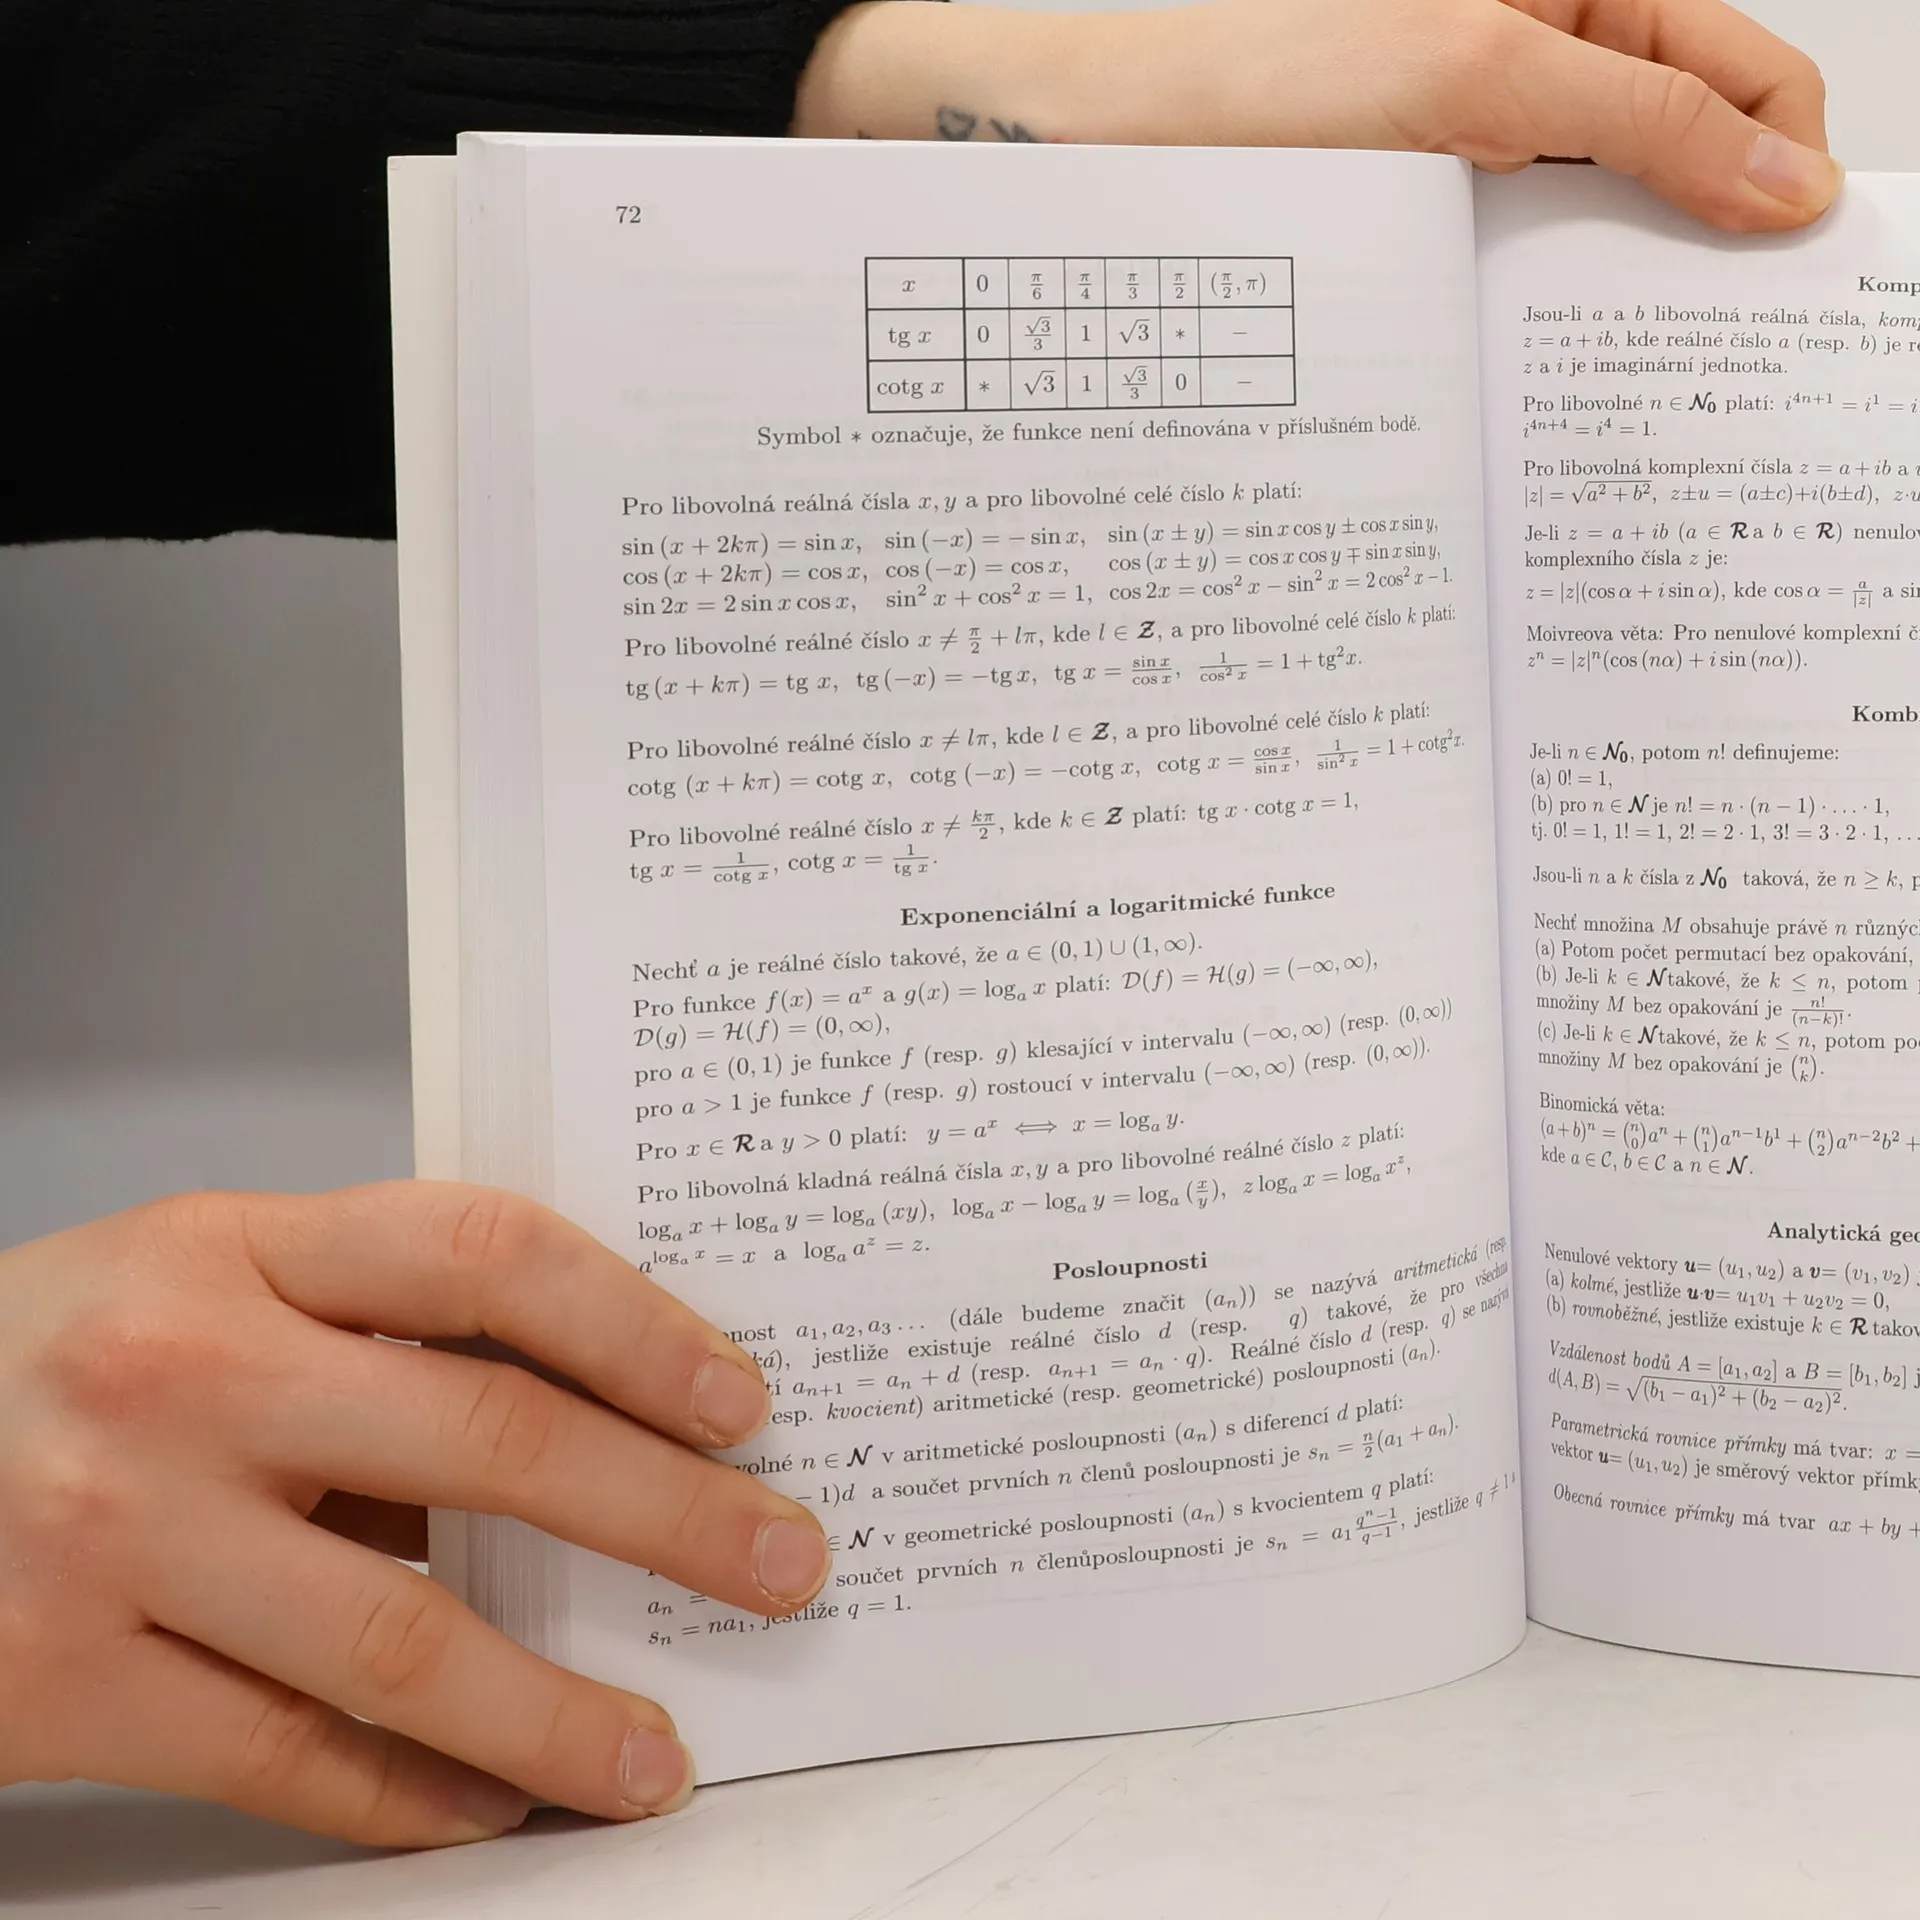 72
x 0 π/6 π/4 π/3 π/2 (π/2, π)
tg x 0 √3/3 1 √3 * −
cotg x * √3 1 √3/3 0 −
Symbol * označuje, že funkce není definována v příslušném bodě.
Pro libovolná reálná čísla x, y a pro libovolné celé číslo k platí:
sin (x + 2kπ) = sin x, sin (−x) = − sin x, sin (x ± y) = sin x cos y ± cos x sin y,
cos (x + 2kπ) = cos x, cos (−x) = cos x, cos (x ± y) = cos x cos y ∓ sin x sin y,
sin 2x = 2 sin x cos x, sin² x + cos² x = 1, cos 2x = cos² x − sin² x = 2 cos² x − 1.
Pro libovolné reálné číslo x ≠ π/2 + lπ, kde l ∈ Z, a pro libovolné celé číslo k platí:
tg (x + kπ) = tg x, tg (−x) = −tg x, tg x = sin x/cos x, 1/cos² x = 1 + tg²x.
Pro libovolné reálné číslo x ≠ lπ, kde l ∈ Z, a pro libovolné celé číslo k platí:
cotg (x + kπ) = cotg x, cotg (−x) = −cotg x, cotg x = cos x/sin x, 1/sin² x = 1 + cotg²x.
Pro libovolné reálné číslo x ≠ kπ/2, kde k ∈ Z platí: tg x · cotg x = 1,
tg x = 1/cotg x, cotg x = 1/tg x.
Exponenciální a logaritmické funkce
Nechť a je reálné číslo takové, že a ∈ (0, 1) ∪ (1, ∞).
Pro funkce f(x) = aˣ a g(x) = logₐ x platí: D(f) = H(g) = (−∞, ∞),
D(g) = H(f) = (0, ∞),
pro a ∈ (0, 1) je funkce f (resp. g) klesající v intervalu (−∞, ∞) (resp. (0, ∞))
pro a > 1 je funkce f (resp. g) rostoucí v intervalu (−∞, ∞) (resp. (0, ∞)).
Pro x ∈ R a y > 0 platí: y = aˣ ⟺ x = logₐ y.
Pro libovolná kladná reálná čísla x, y a pro libovolné reálné číslo z platí:
logₐ x + logₐ y = logₐ (xy), logₐ x − logₐ y = logₐ (x/y), z logₐ x = logₐ x^z,
a^(logₐ x) = x a logₐ a^z = z.
Posloupnosti
nost a₁, a₂, a₃ . . . (dále budeme značit (aₙ)) se nazývá aritmetická (resp.
ká), jestliže existuje reálné číslo d (resp. q) takové, že pro všechna
tí aₙ₊₁ = aₙ + d (resp. aₙ₊₁ = aₙ · q). Reálné číslo d (resp. q) se nazývá
esp. kvocient) aritmetické (resp. geometrické) posloupnosti (aₙ).
volné n ∈ N v aritmetické posloupnosti (aₙ) s diferencí d platí:
− 1)d a součet prvních n členů posloupnosti je sₙ = n/2(a₁ + aₙ).
∈ N v geometrické posloupnosti (aₙ) s kvocientem q platí:
aₙ = součet prvních n členůposloupnosti je sₙ = a₁ (qⁿ−1)/(q−1), jestliže q ≠ 1
sₙ = na₁, jestliže q = 1.
Komp
Jsou-li a a b libovolná reálná čísla, komp
z = a + ib, kde reálné číslo a (resp. b) je re
z a i je imaginární jednotka.
Pro libovolné n ∈ N₀ platí: i⁴ⁿ⁺¹ = i¹ = i
i⁴ⁿ⁺⁴ = i⁴ = 1.
Pro libovolná komplexní čísla z = a + ib a
|z| = √(a² + b²), z±u = (a±c)+i(b±d), z·u
Je-li z = a + ib (a ∈ R a b ∈ R) nenulov
komplexního čísla z je:
z = |z|(cos α + i sin α), kde cos α = a/|z| a sin
Moivreova věta: Pro nenulové komplexní č
zⁿ = |z|ⁿ(cos (nα) + i sin (nα)).
Komb
Je-li n ∈ N₀, potom n! definujeme:
(a) 0! = 1,
(b) pro n ∈ N je n! = n · (n − 1) · . . . . · 1,
tj. 0! = 1, 1! = 1, 2! = 2 · 1, 3! = 3 · 2 · 1, . . .
Jsou-li n a k čísla z N₀ taková, že n ≥ k, p
Nechť množina M obsahuje právě n různýc
(a) Potom počet permutací bez opakování,
(b) Je-li k ∈ N takové, že k ≤ n, potom p
množiny M bez opakování je n!/(n−k)!.
(c) Je-li k ∈ N takové, že k ≤ n, potom po
množiny M bez opakování je (n k).
Binomická věta:
(a+b)ⁿ = (n 0)aⁿ + (n 1)aⁿ⁻¹b¹ + (n 2)aⁿ⁻²b² +
kde a ∈ C, b ∈ C a n ∈ N.
Analytická geo
Nenulové vektory u= (u₁, u₂) a v= (v₁, v₂)
(a) kolmé, jestliže u·v= u₁v₁ + u₂v₂ = 0,
(b) rovnoběžné, jestliže existuje k ∈ R takov
Vzdálenost bodů A = [a₁, a₂] a B = [b₁, b₂] j
d(A, B) = √((b₁ − a₁)² + (b₂ − a₂)²).
Parametrická rovnice přímky má tvar: x =
vektor u= (u₁, u₂) je směrový vektor přímk
Obecná rovnice přímky má tvar ax + by +